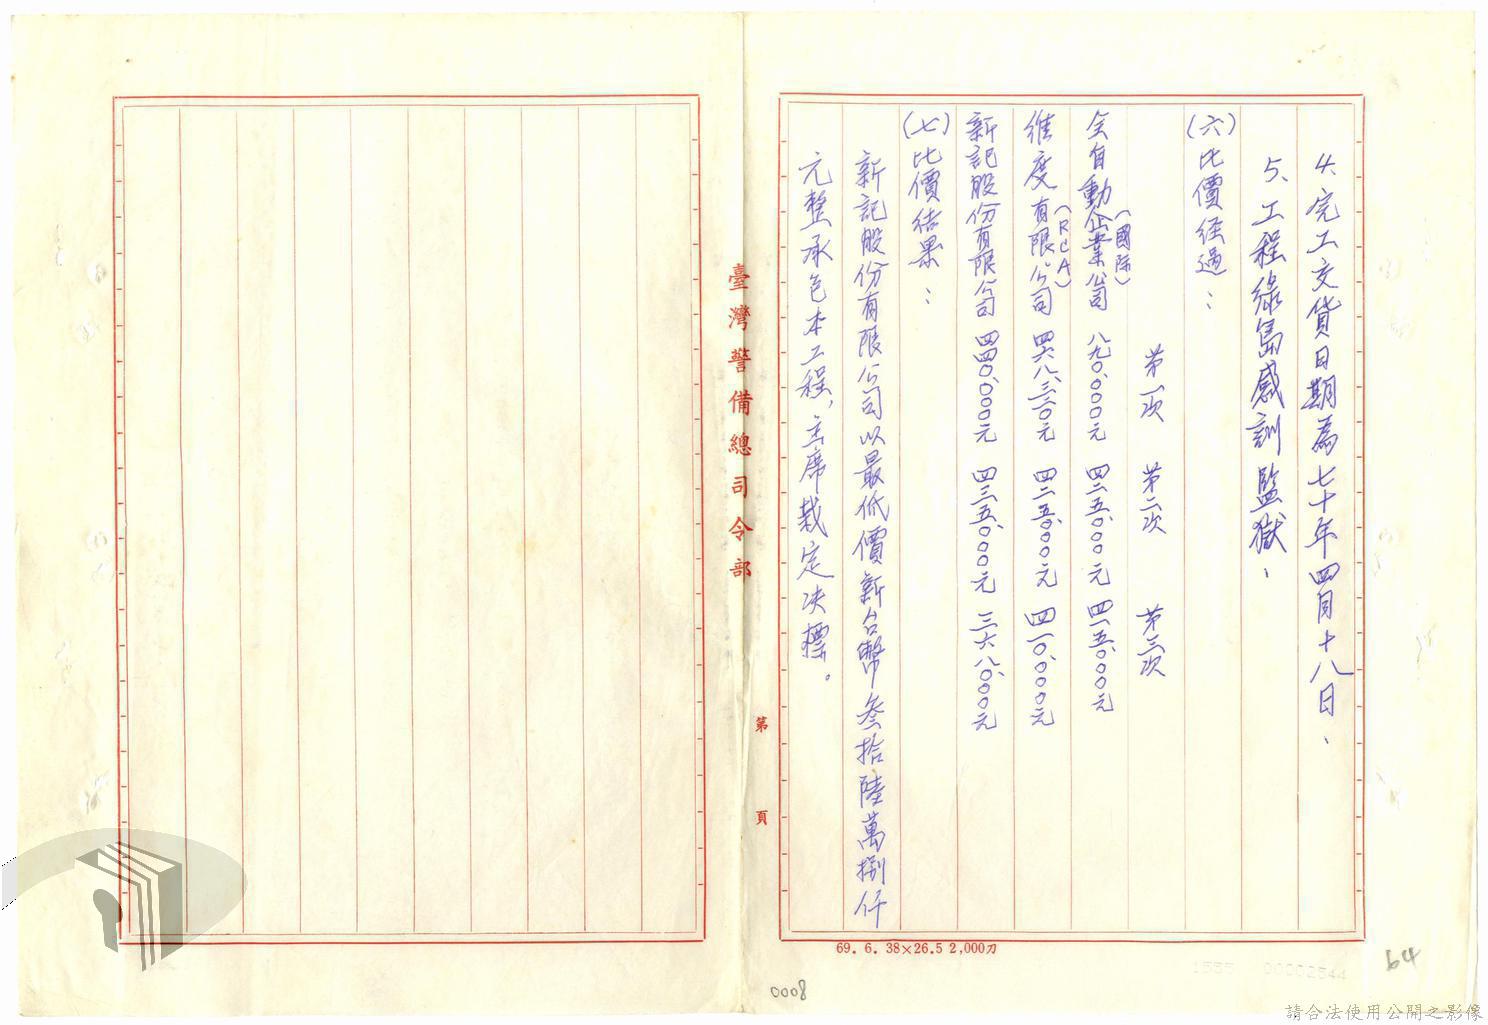 4、完工交貨日期為七十年四月十八日、
5、工程綠島感訓監獄、
(六)比價經過：
第一次 第二次 第三次
全自動企業公司(國際) 八九0.000元 四二五.000元 四一五.000元
維度有限公司(RCA) 四六八.三三0元 四二五.000元 四一0.000元
新記股份有限公司 四四0.000元 四三五.000元 三六八.000元
(七)比價結果：
新記股份有限公司以最低價新台幣叁拾陸萬捌仟
元整承包本工程，主席裁定决標。
臺灣警備總司令部
第 頁
69. 6. 38×26.5 2,000刀
0008
64
1555 00002544
請合法使用公開之影像